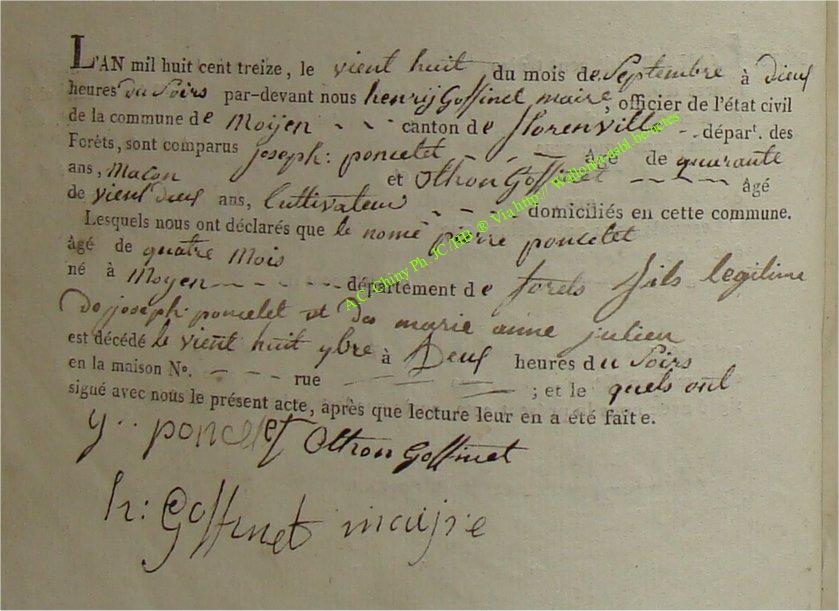 L'AN mil huit cent treize, le vient huit du mois de Septembre à dieux
heures du Soirs par-devant nous henrij Goffinet maire, officier de l'état civil
de la commune de Moijen - - canton de florenville - départ. des
Forêts, sont comparus joseph: poncelet - - âgé de quarante
ans, Macon et Othon Goffinet - - - - âgé
de vient dieux ans, Cultivateur - - domiciliés en cette commune.
Lesquels nous ont déclarés que le nomé pierre poncelet
âgé de quatre Mois
né à Moyen - - - - - département de forets fils legitime
de joseph poncelet et de marie anne julien
est décédé le vient huit 7bre à Deux heures du Soirs
en la maison N°. - - - rue - - - ; et le quels ont
signé avec nous le présent acte, après que lecture leur en a été faite.
y.. poncelet Othon Goffinet
h: Goffinet maire
A C / Chiny Ph JC/HB ® Via http / Wallonie asbl